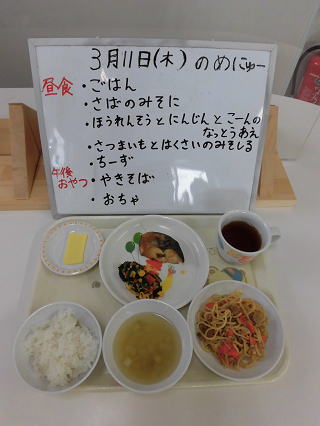 3月11日(木) のめにゅー
昼食 ・ごはん
・さばのみそに
・ほうれんそうとにんじんとこーんの
なっとうあえ
・さつまいもとはくさいのみそしる
・ちーず
午後おやつ ・やきそば
・おちゃ